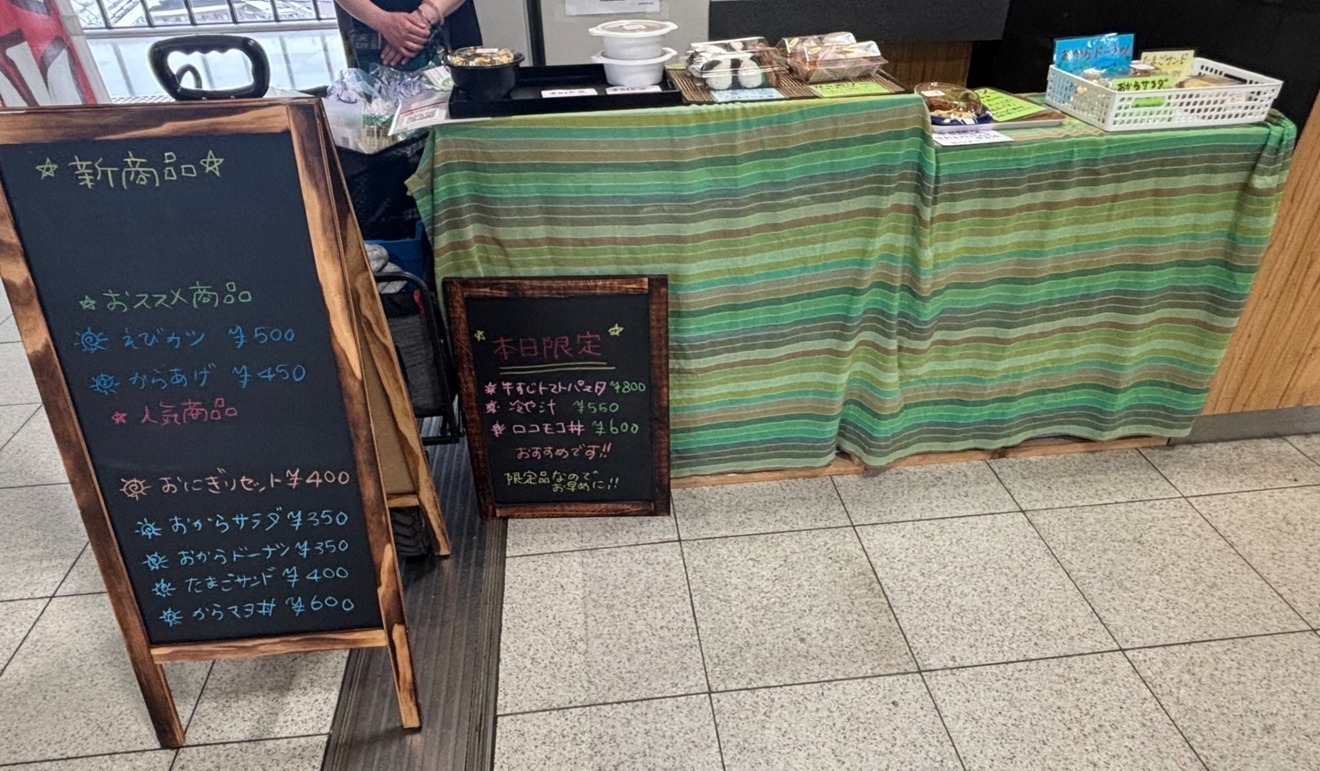 ☆新商品☆
☆おススメ商品
えびカツ ¥500
からあげ ¥450
☆人気商品
おにぎりセット¥400
おからサラダ¥350
おからドーナツ¥350
たまごサンド¥400
からマヨ丼 ¥600
☆ ☆
本日限定
牛すじトマトパスタ¥800
冷や汁 ¥550
ロコモコ丼 ¥600
おすすめです!!
限定品なので
お早めに!!
おからドーナツ
たまごサンド
おからサラダ